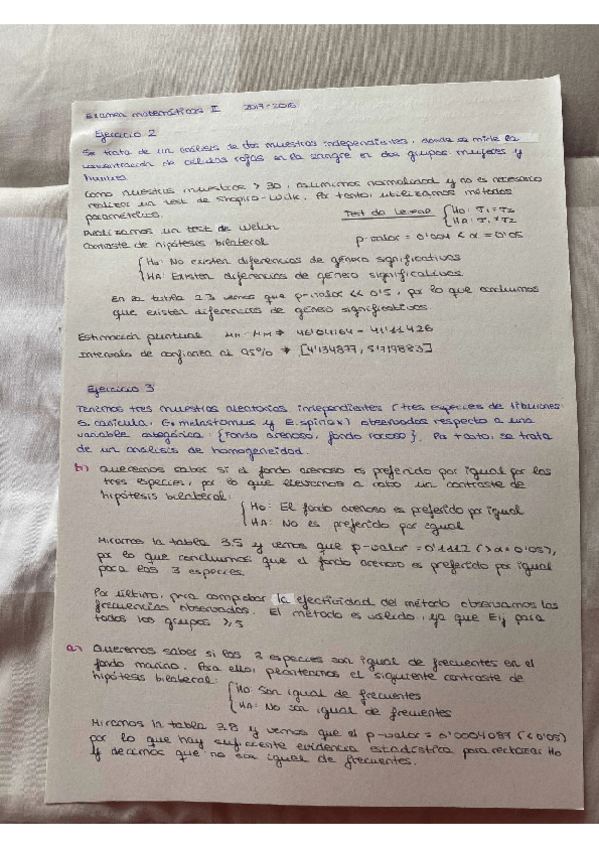 Examen matemáticas II 2017-2018
Ejercicio 2
Se trata de un análisis de dos muestras independientes, donde se mide la
concentración de células rojas en la sangre en dos grupos mujeres y
hombres
Como nuestras muestras > 30, asumimos normalidad y no es necesario
realizar un test de Shapiro-Wilk. Por tanto, utilizamos métodos
paramétricos.
Test de Levene { H0: σ1 = σ2
HA: σ1 ≠ σ2
Realizamos un test de Welch
Contraste de hipótesis bilateral
p-valor = 0'004 < α = 0'05
{ H0: No existen diferencias de género significativas
HA: Existen diferencias de género significativas
En la tabla 2.3 vemos que p-valor << 0'5, por lo que concluimos
que existen diferencias de género significativas
Estimación puntual μH - μM → 46'04164 - 41'11426
Intervalo de confianza al 95% → [4'134877, 5'719883]
Ejercicio 3
Tenemos tres muestras aleatorias independientes (tres especies de tiburones
S. canicula, G. melastomus y E. spinax) observados respecto a una
variable categórica: {fondo arenoso, fondo rocoso}. Por tanto, se trata
de un análisis de homogeneidad.
b) Queremos saber si el fondo arenoso es preferido por igual por las
tres especies, por lo que llevamos a cabo un contraste de
hipótesis bilateral:
{ H0: El fondo arenoso es preferido por igual
HA: No es preferido por igual
Miramos la tabla 3.5 y vemos que p-valor = 0'1112 (> α = 0'05),
por lo que concluimos que el fondo arenoso es preferido por igual
para las 3 especies.
Por último, para comprobar la efectividad del método observamos las
frecuencias observadas. El método es válido, ya que Eij para
todos los grupos ≥ 5
a) Queremos saber si las 3 especies son igual de frecuentes en el
fondo marino. Para ello, planteamos el siguiente contraste de
hipótesis bilateral:
{ H0: Son igual de frecuentes
HA: No son igual de frecuentes
Miramos la tabla 3.8 y vemos que el p-valor = 0'0004087 (< 0'05)
por lo que hay suficiente evidencia estadística para rechazar H0
y decimos que no son igual de frecuentes.